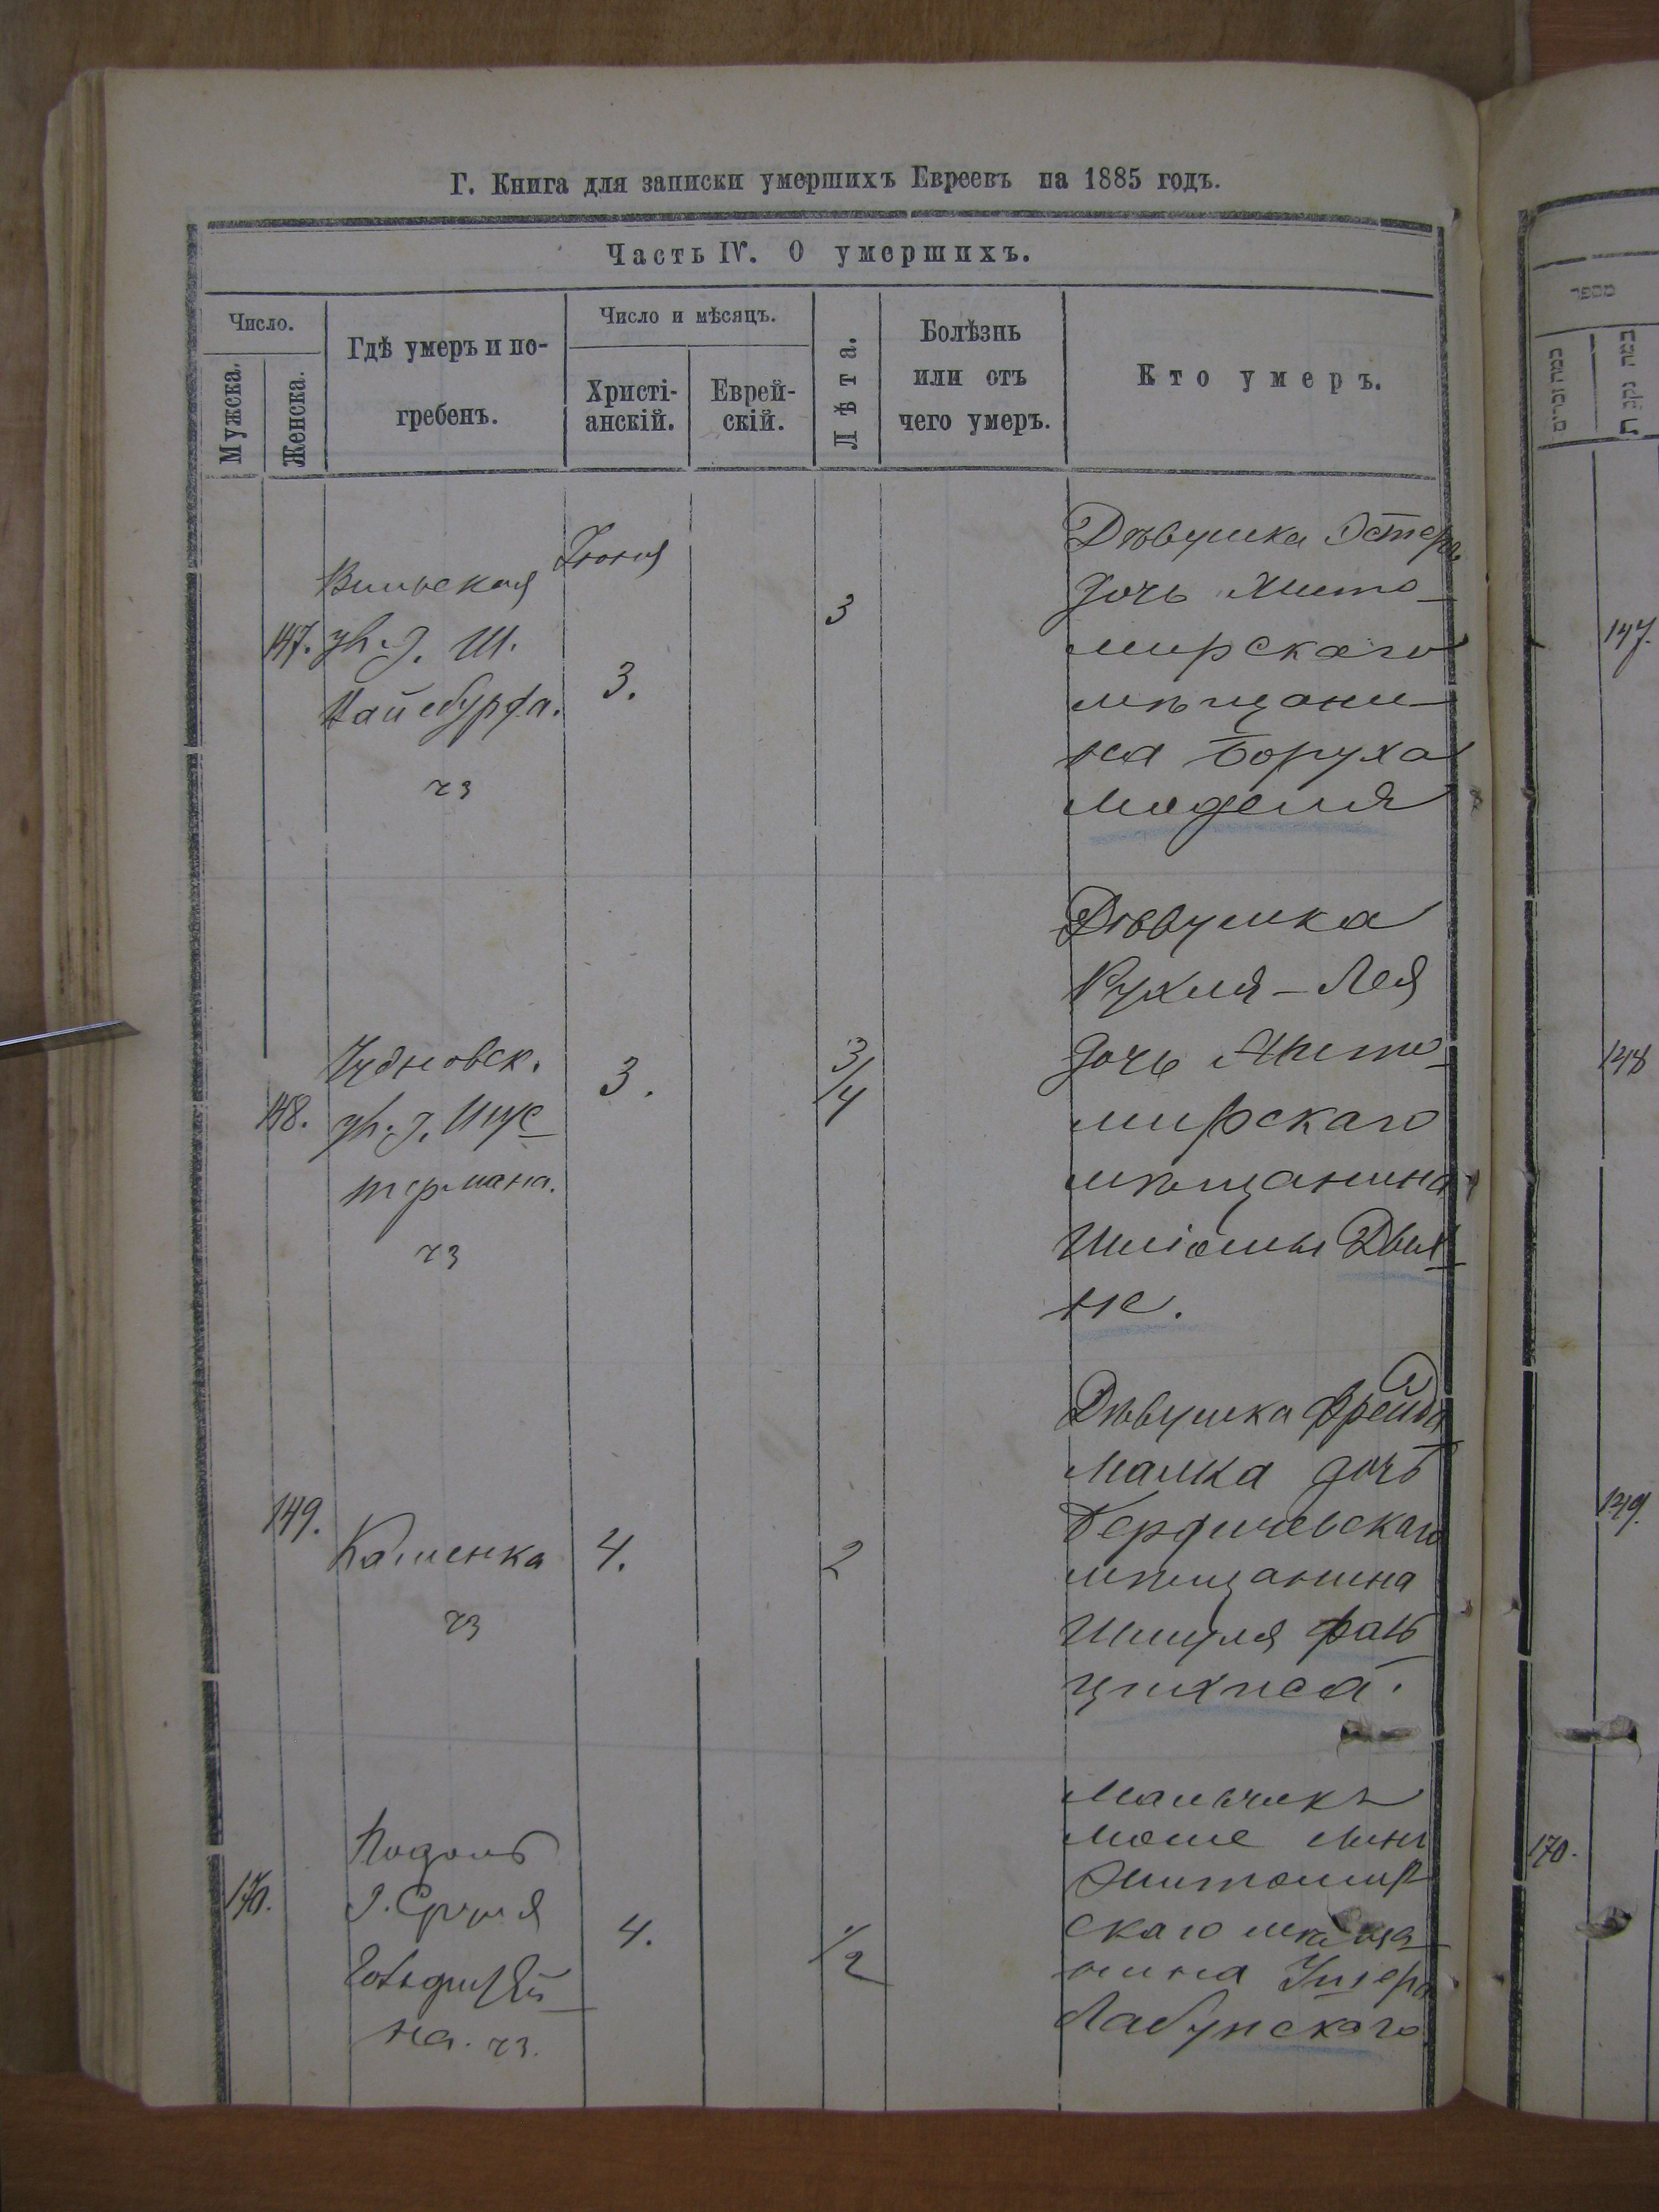 Г. Книга для записки умершихъ Евреевъ на 1885 годъ.
Часть IV. О умершихъ.
Число.
Мужска.
Женска.
Гдѣ умеръ и по-
гребенъ.
Число и мѣсяцъ.
Христі-
анскій.
Еврей-
скій.
Лѣта.
Болѣзнь
или отъ
чего умеръ.
Кто умеръ.
147.
Вильская
ул. д. Ш.
чз
Іюня
3.
3
Дѣвушка Эстера
дочь Жито-
мирскаго
мѣщани-
на Боруха
Моделя
148.
Чудновск.
ул. д. Шус-
термана.
чз
3.
3/4
Дѣвушка
Рухля-Лея
дочь Жито-
мирскаго
мѣщанина
Шліомы Двих-
не.
149.
Каменка
чз
4.
2
Дѣвушка Фрейда
Малка дочь
Бердичевскаго
мѣщанина
Шмуля
170.
Подоль
д. Сруля
на. чз.
4.
1/2
Мальчикъ
Моше сынъ
Житомир
скаго мѣща-
нина Ушера
Лабунскаго
מספר
147.
148
149.
170.